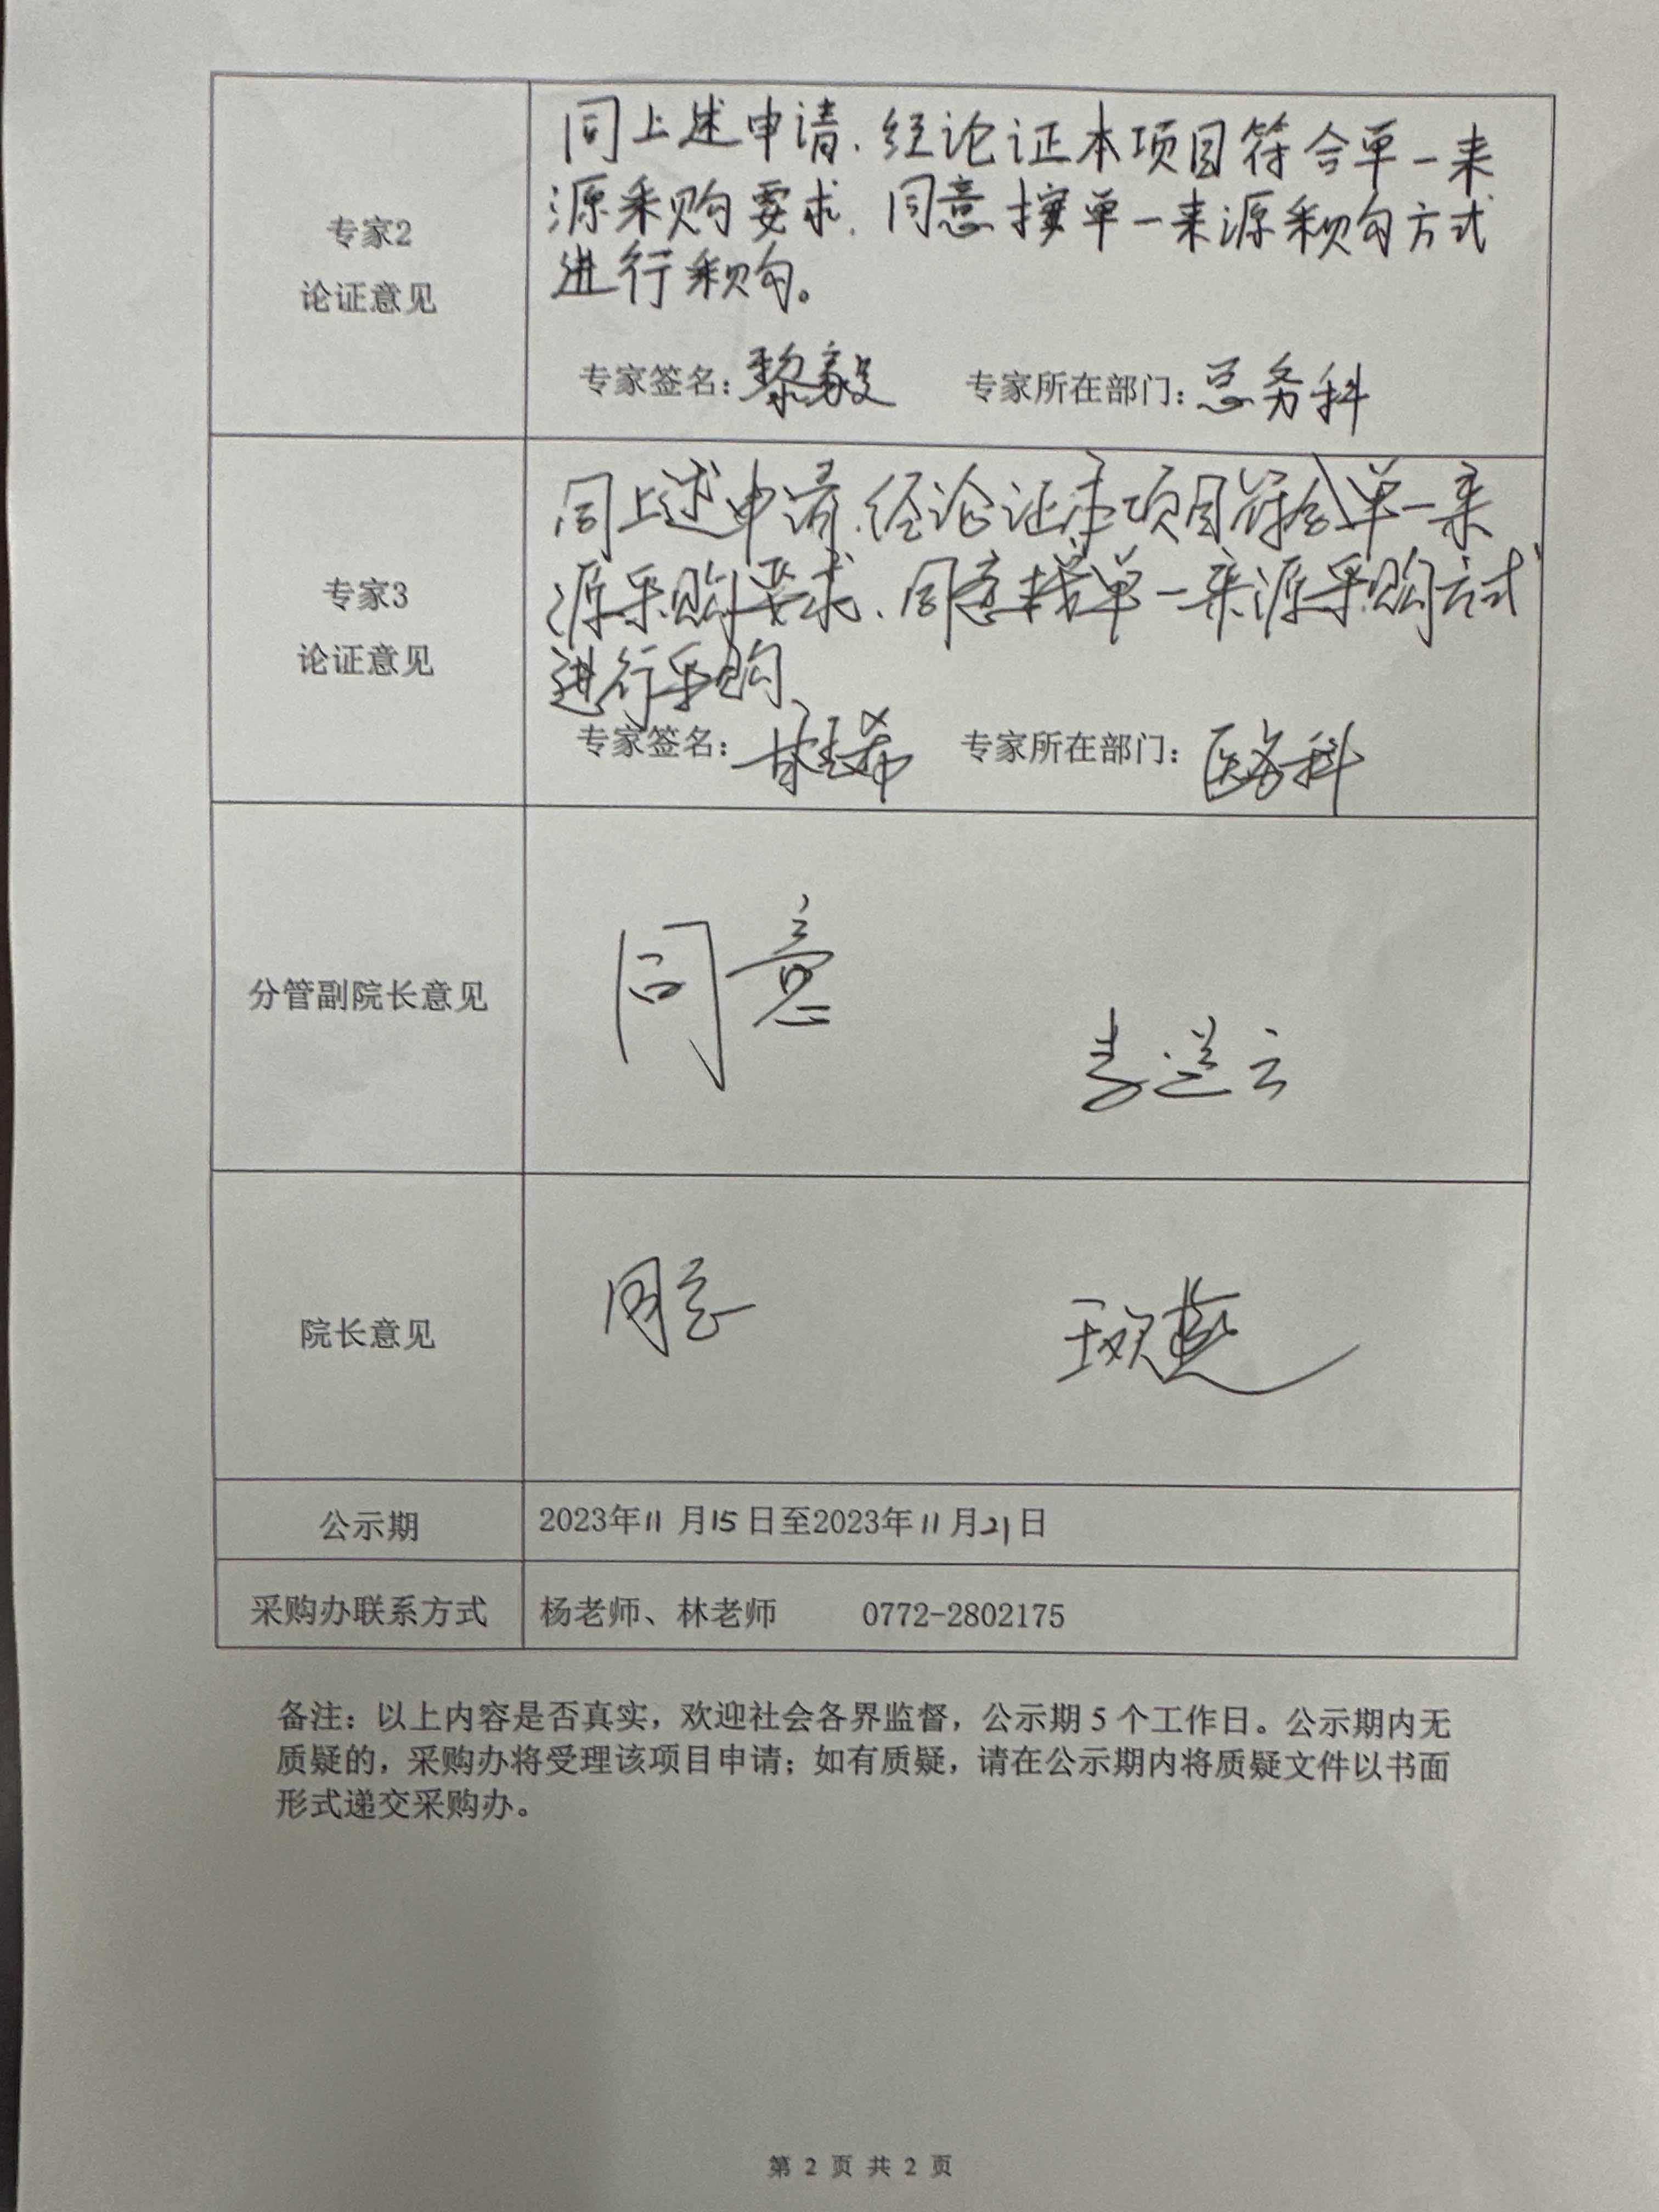 专家2
论证意见
同上述申请、经论证本项目符合单一来
源采购要求、同意按单一来源采购方式
进行采购。
专家签名：黎毅 专家所在部门：总务科
专家3
论证意见
同上述申请、经论证本项目符合单一来
源采购要求、同意按单一来源采购方式
进行采购、
专家签名： 专家所在部门：医务科
分管副院长意见
同意
院长意见
同意
公示期
2023年11月15日至2023年11月21日
采购办联系方式
杨老师、林老师 0772-2802175
备注：以上内容是否真实，欢迎社会各界监督，公示期5个工作日。公示期内无
质疑的，采购办将受理该项目申请；如有质疑，请在公示期内将质疑文件以书面
形式递交采购办。
第 2 页 共 2 页